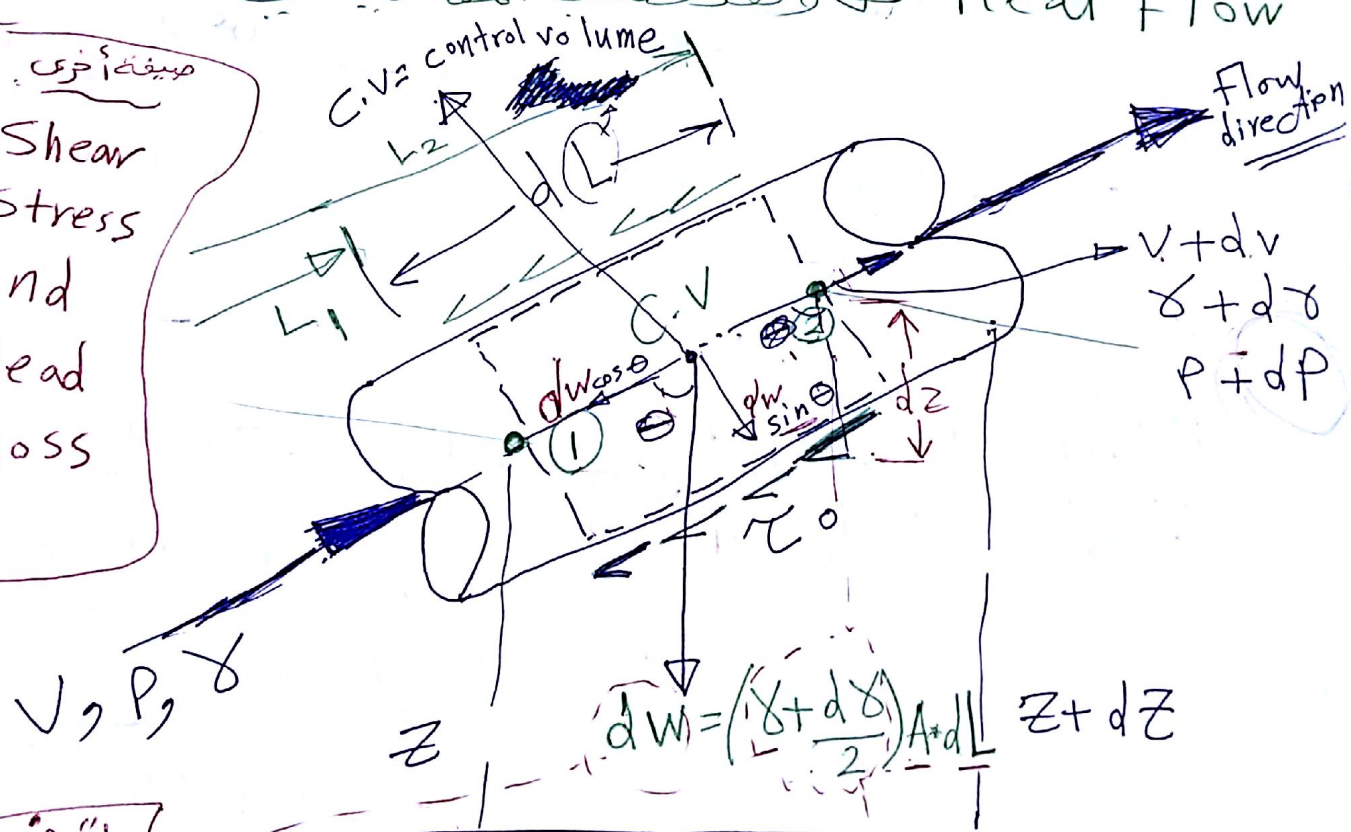 Real Flow
صيغة أخرى
Shear
Stress
nd
ead
oss
C.V = control volume
L2
d(L)
L1
Flow
direction
V + dv
γ + dγ
P + dP
C.V
dw cos θ
θ
dw sin θ
dz
1
2
τ0
V, P, γ
Z
dw = (γ + dγ/2) A * dL
Z + dZ